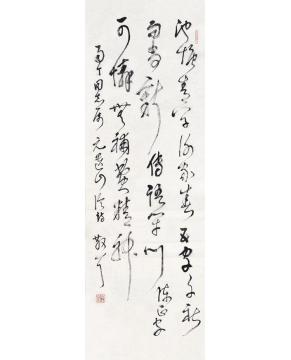 池塘春草謝家春萬古千秋
五字新傳語閉門陳正字
可憐無補費精神
同志屬元遺山論詩散耳